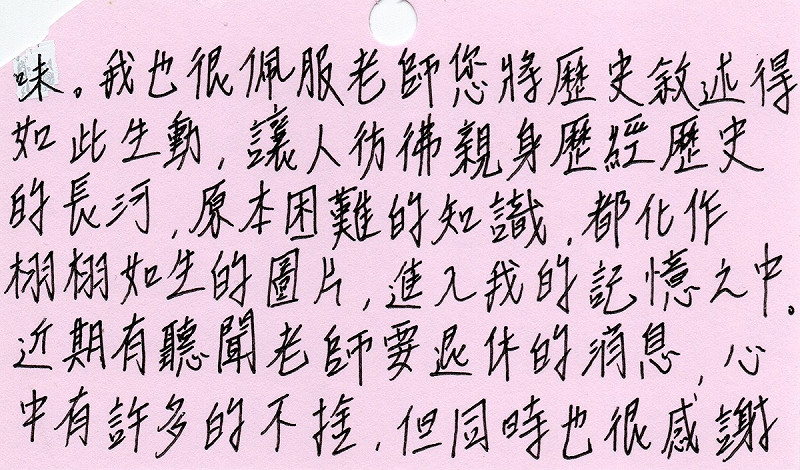 味。我也很佩服老師您將歷史敘述得
如此生動,讓人彷彿親身歷經歷史
的長河,原本困難的知識,都化作
栩栩如生的圖片,進入我的記憶之中。
近期有聽聞老師要退休的消息,心
中有許多的不捨,但同時也很感謝